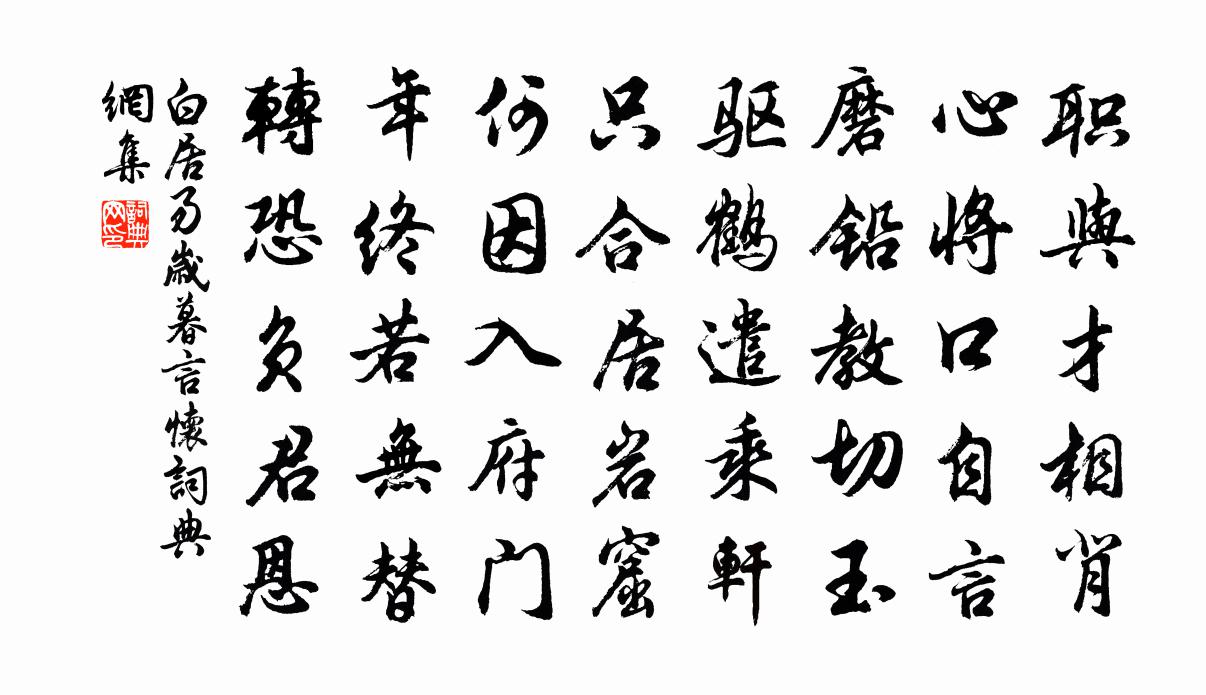 职與才相背
心将口自言
磨铅教切玉
驱鹤遣乘軒
只合居岩窟
何因入府门
年终若無替
轉恐负君恩
白居易歲暮言懷詞典
網集
詞典
网印